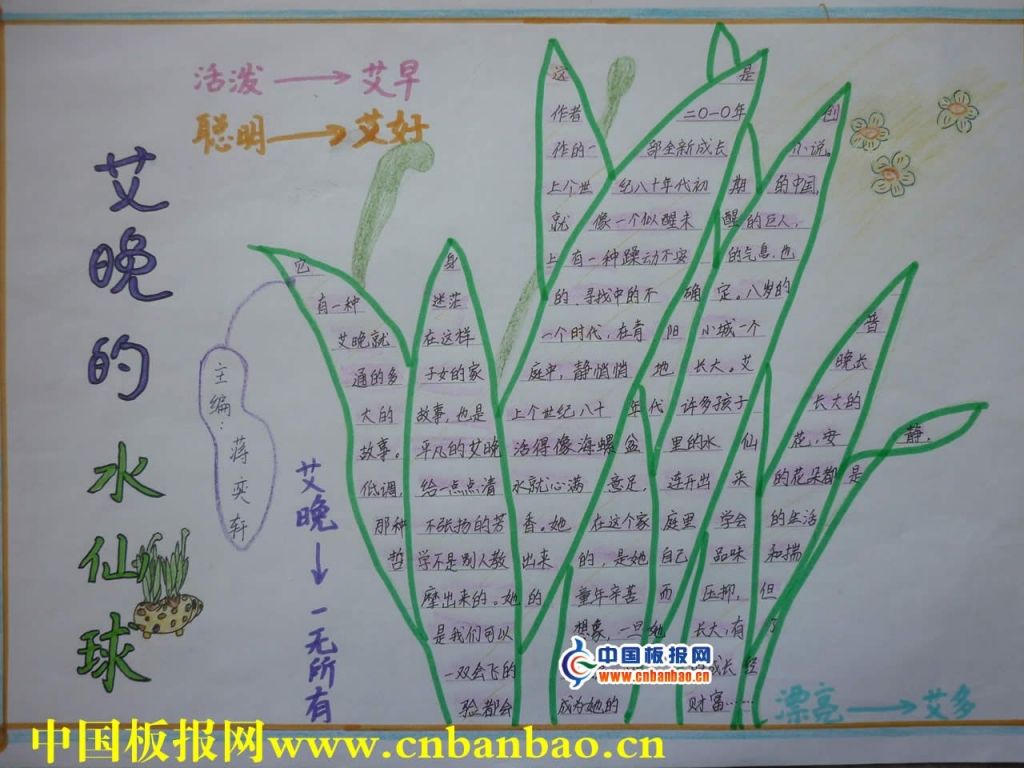 活泼→艾早
聪明→艾好
艾晚的水仙球
主编:蒋奕轩
艾晚→一无所有
这是
作者二〇一〇年创
作的一部全新成长小说。
上个世纪八十年代初期的中国,
就像一个似醒未醒的巨人,
它身上有一种躁动不安的气息,也
有一种迷茫的、寻找中的不确定。八岁的
艾晚就在这样一个时代,在青阳小城一个普
通的多子女的家庭中,静悄悄地长大。艾晚长
大的故事,也是上个世纪八十年代许多孩子长大的
故事。平凡的艾晚活得像海螺盆里的水仙花,安静,
低调,给一点点清水就心满意足,连开出来的花朵都是
那种不张扬的芳香。她在这个家庭里学会的生活
哲学不是别人教出来的,是她自己品味和揣
摩出来的。她的童年辛苦而压抑,但
是我们可以想象,一旦她长大,有了
一双会飞的成长经
验都会成为她的财富……
漂亮→艾多
中国板报网
www.cnbanbao.cn
中国板报网www.cnbanbao.cn